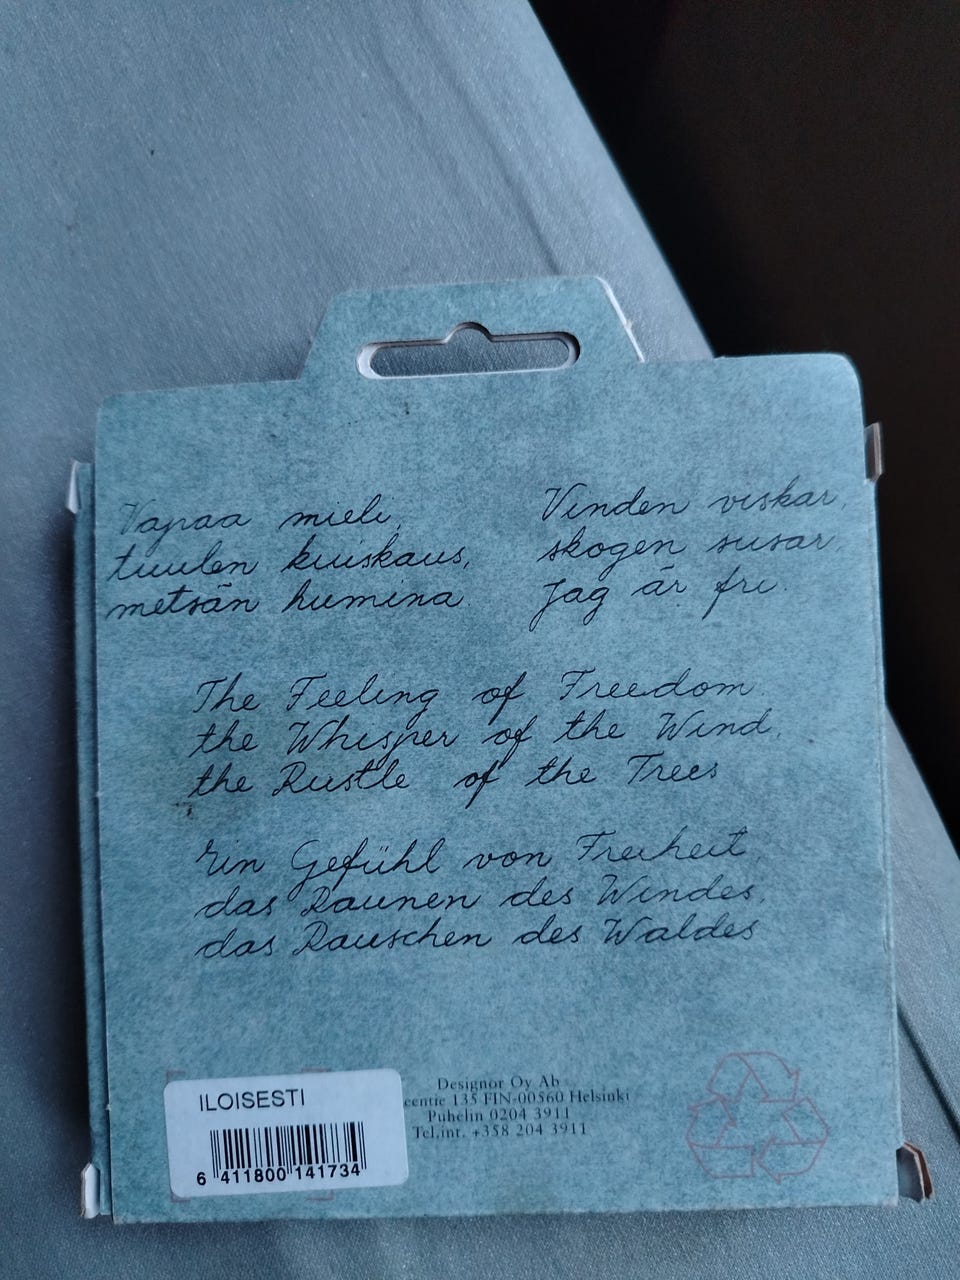 Vapaa mieli,
tuulen kuiskaus,
metsän humina
Vinden viskar,
skogen susar,
Jag är fri.
The Feeling of Freedom
the Whisper of the Wind,
the Rustle of the Trees
Ein Gefühl von Freiheit,
das Raunen des Windes,
das Rauschen des Waldes
ILOISESTI
6 411800 141734
Designor Oy Ab
135 FIN-00560 Helsinki
Puhelin 0204 3911
Tel.int. +358 204 3911